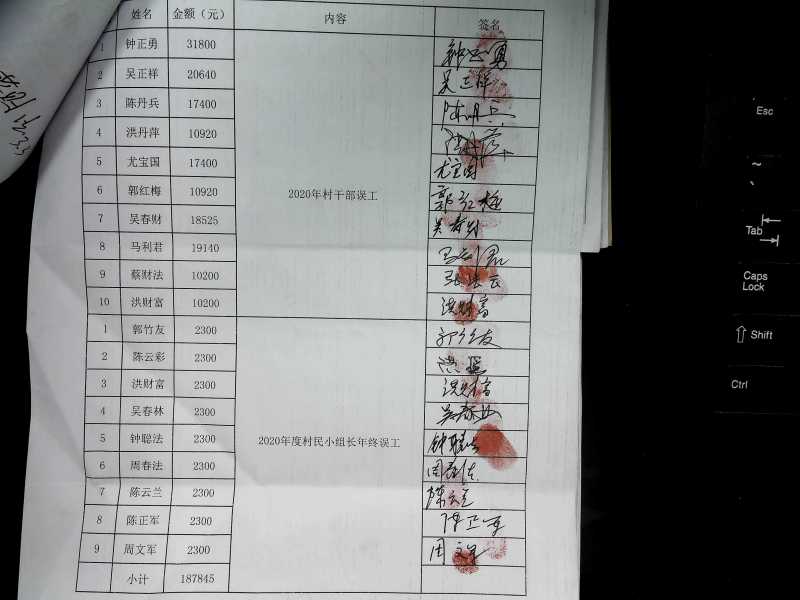 姓名 金额（元） 内容 签名
1 钟正勇 31800 钟正勇
2 吴正样 20640 吴正样
3 陈丹兵 17400 陈丹兵
4 洪丹萍 10920
5 尤宝国 17400 尤宝国
6 郭红梅 10920 郭红梅
2020年村干部误工
7 吴春财 18525 吴春财
8 马利君 19140 马利君
9 蔡财法 10200
10 洪财富 10200 洪财富
1 郭竹友 2300 郭竹友
2 陈云彩 2300
3 洪财富 2300 洪财富
4 吴春林 2300 吴春林
5 钟聪法 2300 钟聪法
2020年度村民小组长年终误工
6 周春法 2300 周春法
7 陈云兰 2300 陈云兰
8 陈正军 2300 陈正军
9 周文军 2300 周文军
小计 187845
Esc
~
Tab
Caps
Lock
Shift
Ctrl